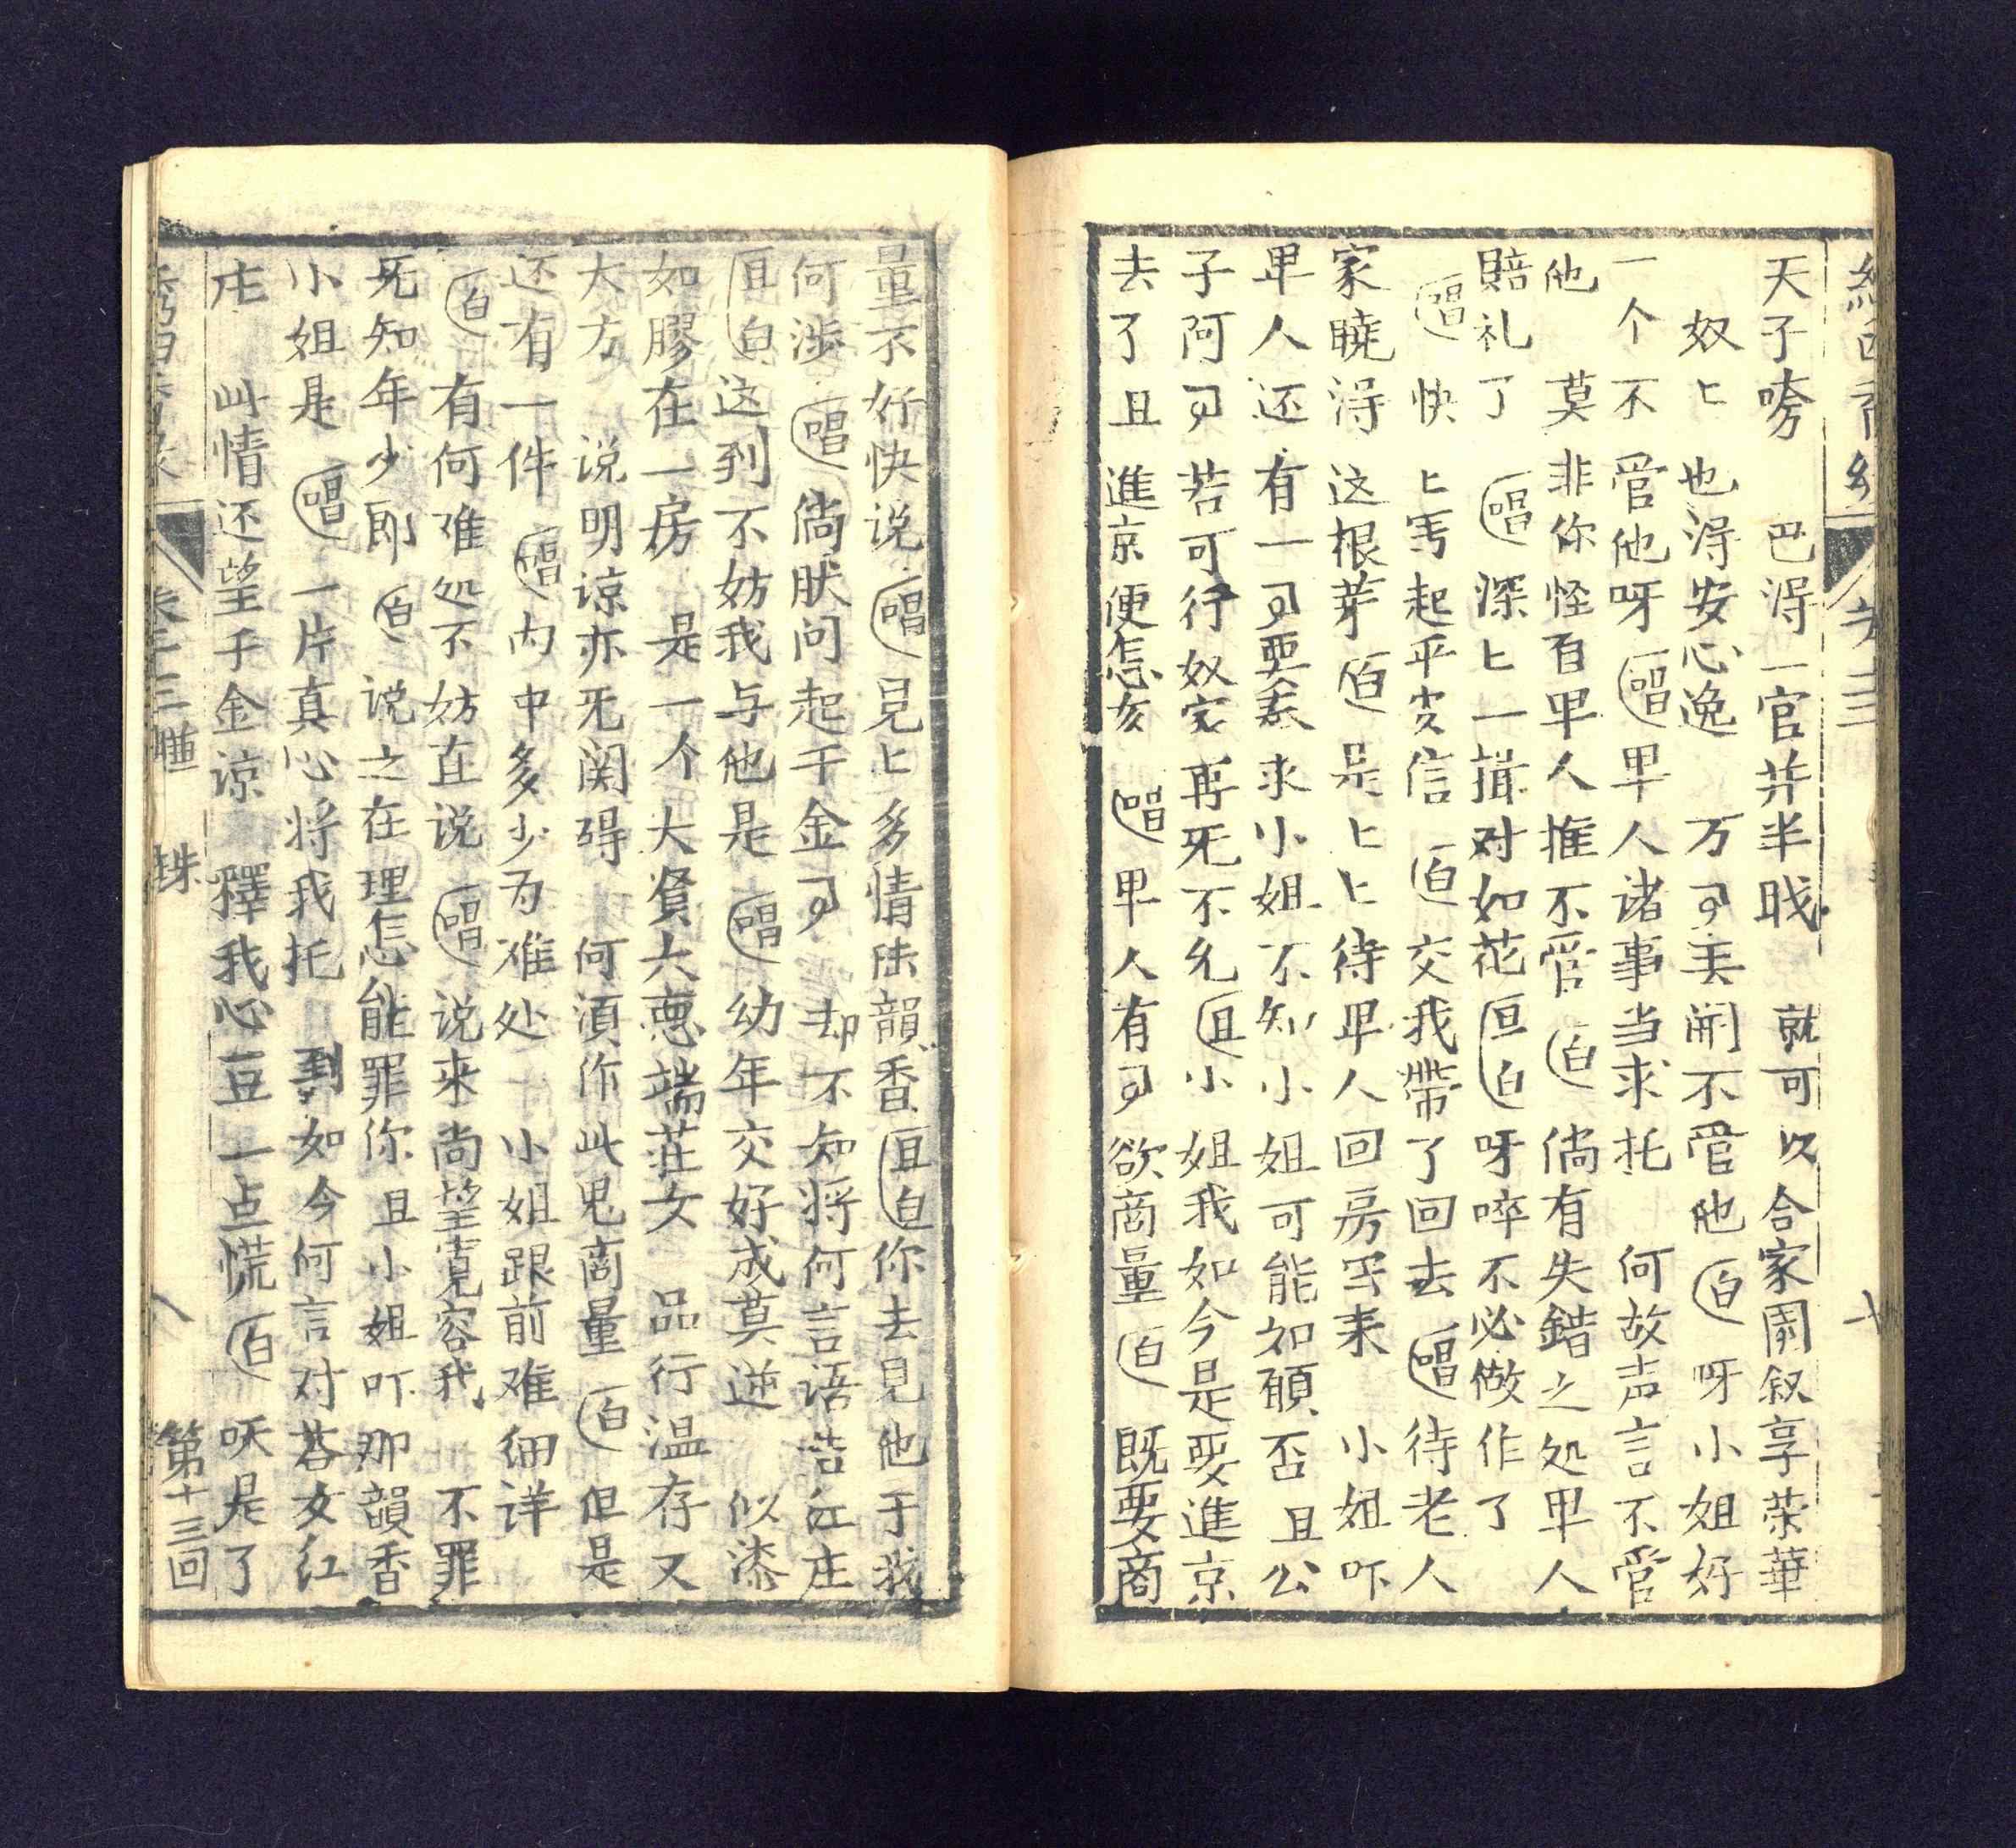 天子喀　巴淂一官并半戝　就可以合家圕叙享荣華
奴匕　也淂安心逸　万　美闹不管他　白　呀小姐好
一个不管他呀　唱　早人诸事当求托　何故声言不管
他　莫非你怪百早人推不管　白　倘有失錯之处早人
賠礼了　唱　深匕一揖对如花　旦白　呀啐不必做作了
唱　快匕寫起平安信　白　交我帶了回去　唱　待老人
家曉淂这根芽　白　是匕匕待早人回房寫来　小姐吓
早人还有一　要奉求小姐不知小姐可能如願否　旦　公
子阿　若可行奴家再旡不允　旦　小姐我如今是要進京
去了且進京便怎么　唱　早人有　欲啇量　白　既要商
量不好快说　唱　見匕多情陆韻香　旦白　你去見他于我
何涉　唱　倘朕问起千金　却不知将何言语告红庄
旦白　这到不妨我与他是　唱　幼年交好成莫逆　似漆
如膠在一房　是一个大賢大惠端莊女　品行温存又
大方　说明谅亦旡関碍　何須作此鬼啇量　白　但是
还有一件　唱　内中多少为难处　小姐跟前难细详
白　有何难处不妨直说　唱　说来尚望寬容我　不罪
旡知年少郎　白　说之在理怎能罪你且小姐吓那韻香
小姐是　唱　一片真心将我托　到如今何言对答女红
庄　此情还望千金谅　釋我心豆一点慌　白　呸是了
第十三回